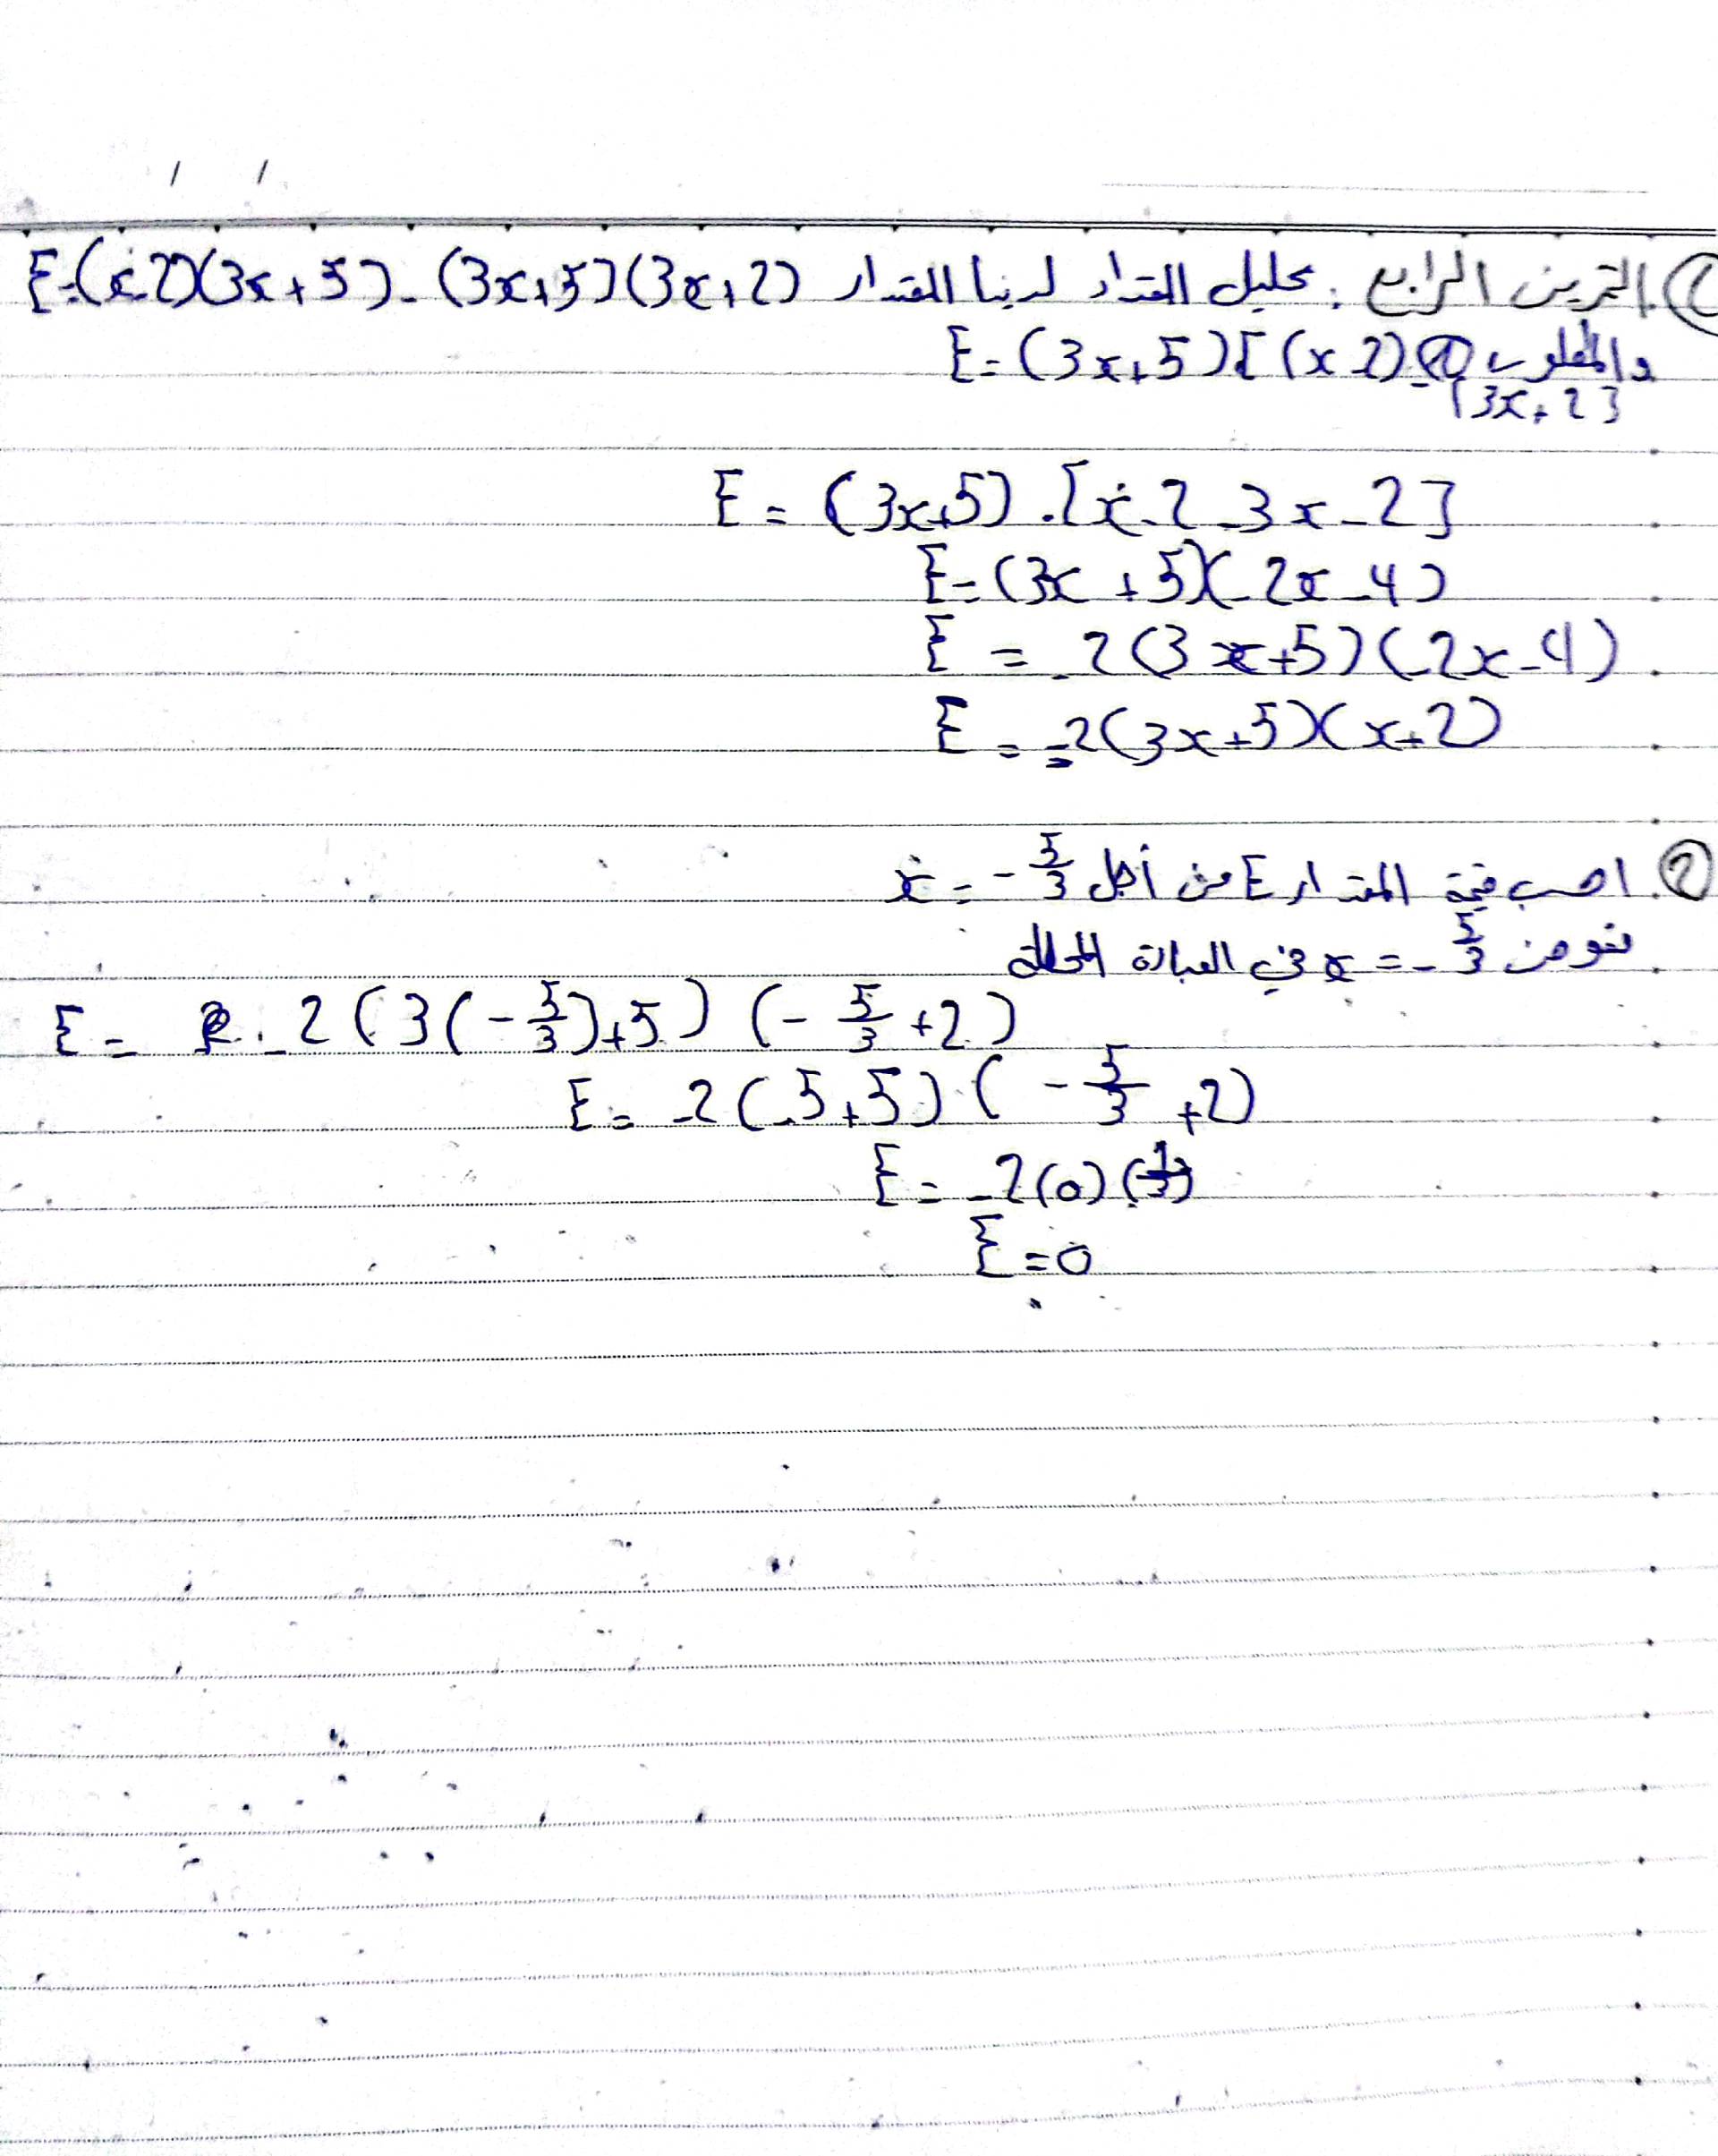 ① التمرين الرابع: تحليل المقدار لدينا المقدار E=(x-2)(3x+5)-(3x+5)(3x+2)
والمطلوب ① E=(3x+5)[(x-2)-
(3x+2]
E = (3x+5).[x-2-3x-2]
E=(3x+5)(-2x-4)
E = -2(3x+5)(-2x-4)
E = -2(3x+5)(x+2)
② احسب قيمة المقدار E من أجل x = -5/3
نعوض x = -5/3 في العبارة المحللة
E = -2(3(-5/3)+5)(-5/3+2)
E = -2(-5+5)(-5/3+2)
E = -2(0)(1/3)
E = 0